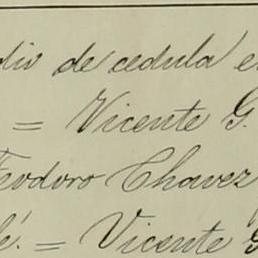 div de cedula e
= Vicente G.
Teodoro Chavez
lé. = Vicente G